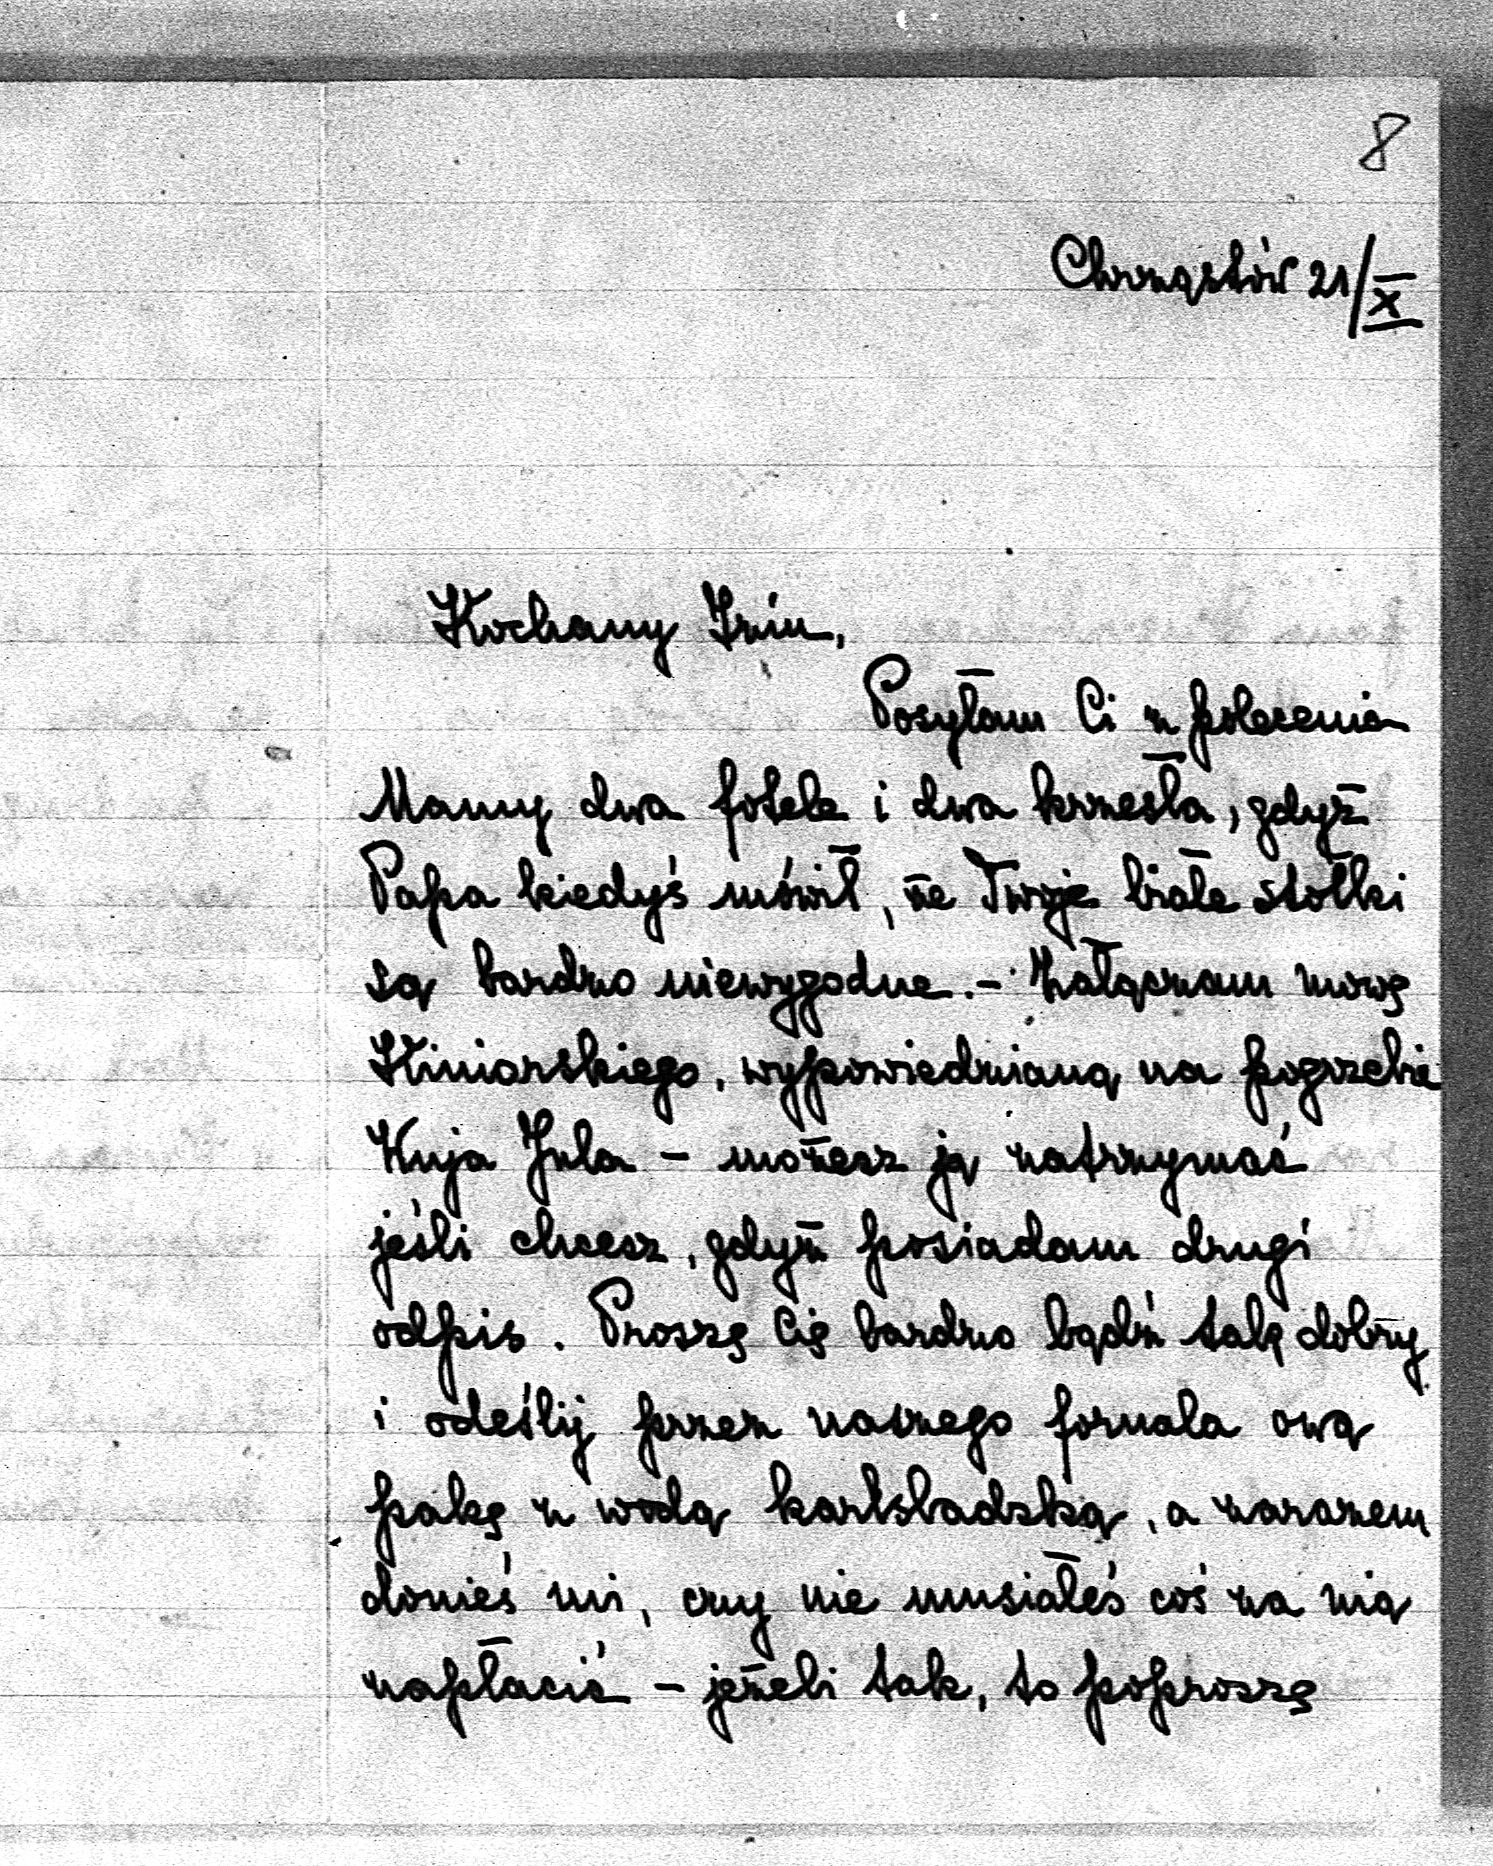 8
Chrząstów 21/X
Kochany Iziu,
Posyłam Ci z polecenia
Mamy dwa fotele i dwa krzesła, gdyż
Papa kiedyś mówił, że Twoje białe stołki
są bardzo niewygodne. - Załączam mowę
wypowiedzianą na pogrzebie
Wuja Jula - możesz ją zatrzymać
jeśli chcesz, gdyż posiadam drugi
odpis. Proszę Cię bardzo bądź tak dobry
i odeślij przez naszego fornala ową
pakę z wodą karlsbadzką, a zarazem
donieś mi, czy nie musiałeś coś za nią
zapłacić - jeżeli tak, to poproszę